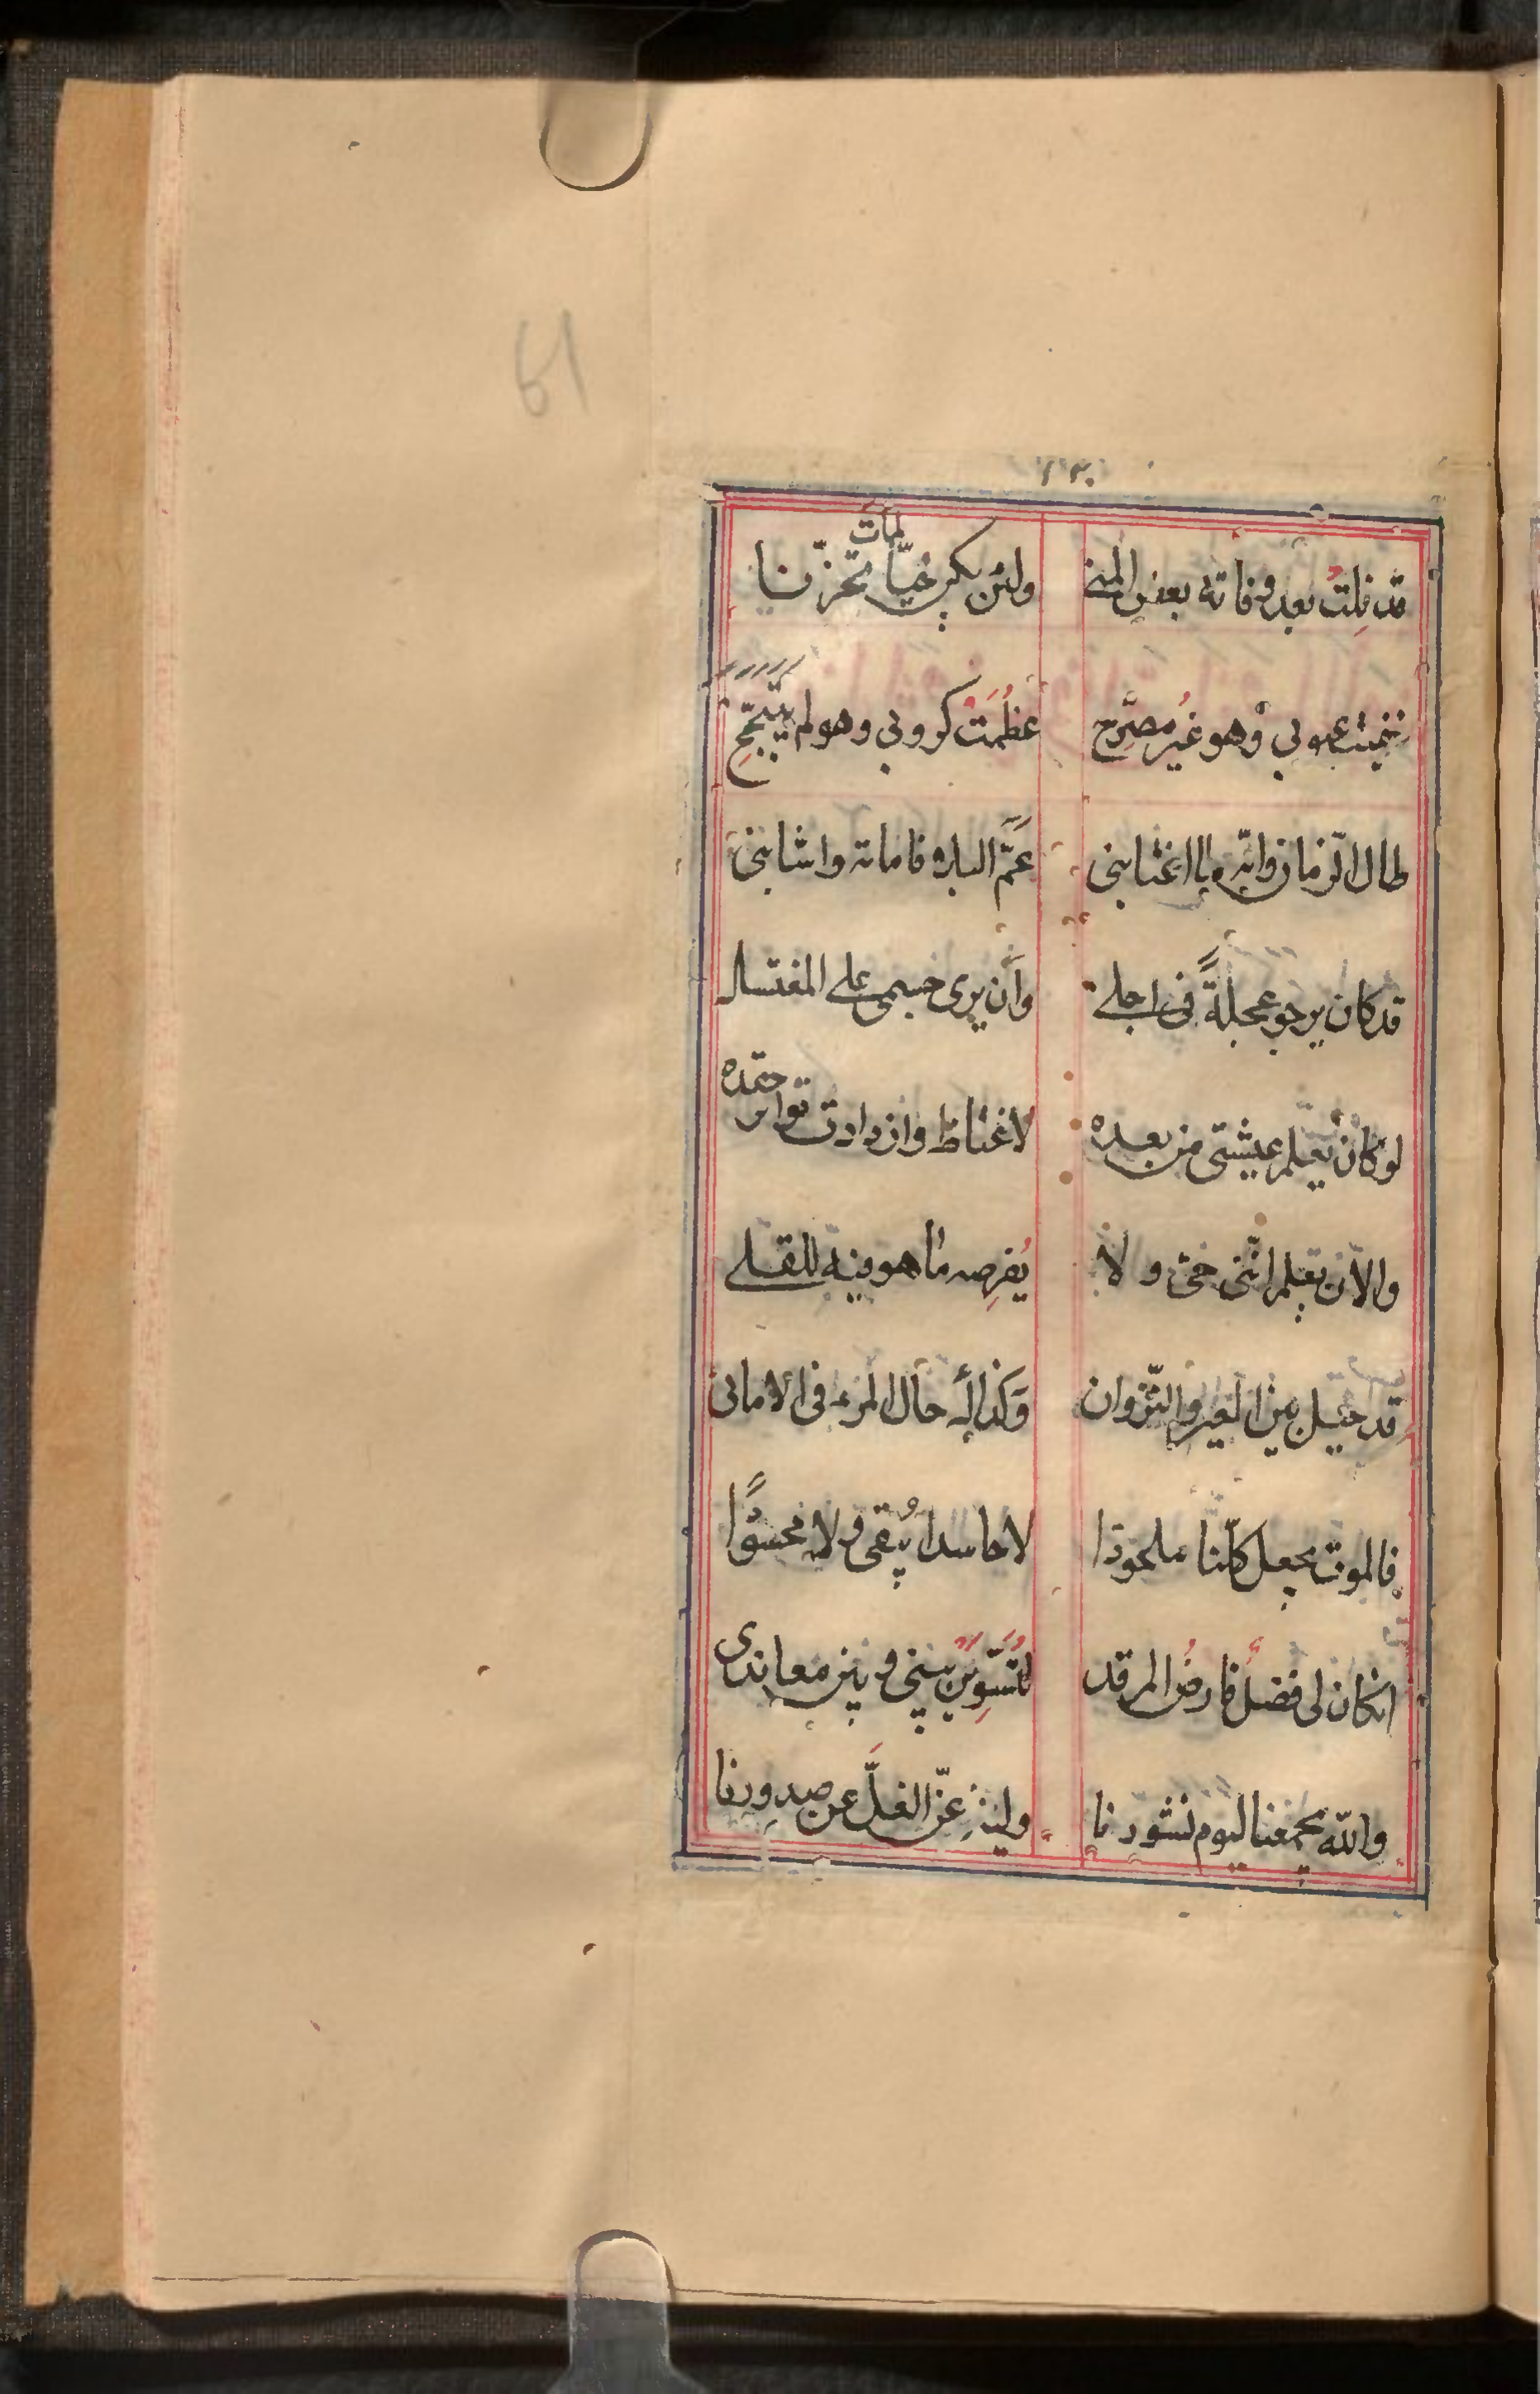 ١٣٠
قد نِلتُ بعد وفاته بعض المنى ولئن يكن حيّا لمات تحزّنا
عيوبي وهو غير مصرّح عظُمَت كروبي وهو لم يتبجّح
طال الزمان وانّه ما اغتابنى عَمَّ البلاء فاماته واشابنى
قد كان يرجو عجلةً فى اجلى وأن يرى جسمى على المغتسل
لو كان يعلم عيشتى من بعده لاغتاظ وازدادت تواتر حقده
والآن يعلم انّنى حىّ ولا يُفرِصه ما هو فيه للقلى
قد حيل بين العير والنّزوان وَكذاك حال المرء فى الامانى
فالموت يجعل كلّنا ملحودا لا حاسدا يُبقى ولا محسودًا
انكان لى فضلُ فارضُ المرقد لتُسَوِّيَنْ بينى وبين معاندى
والله يجمعنا ليوم نشورنا ولينزِعنّ الغلَّ عن صدورنا